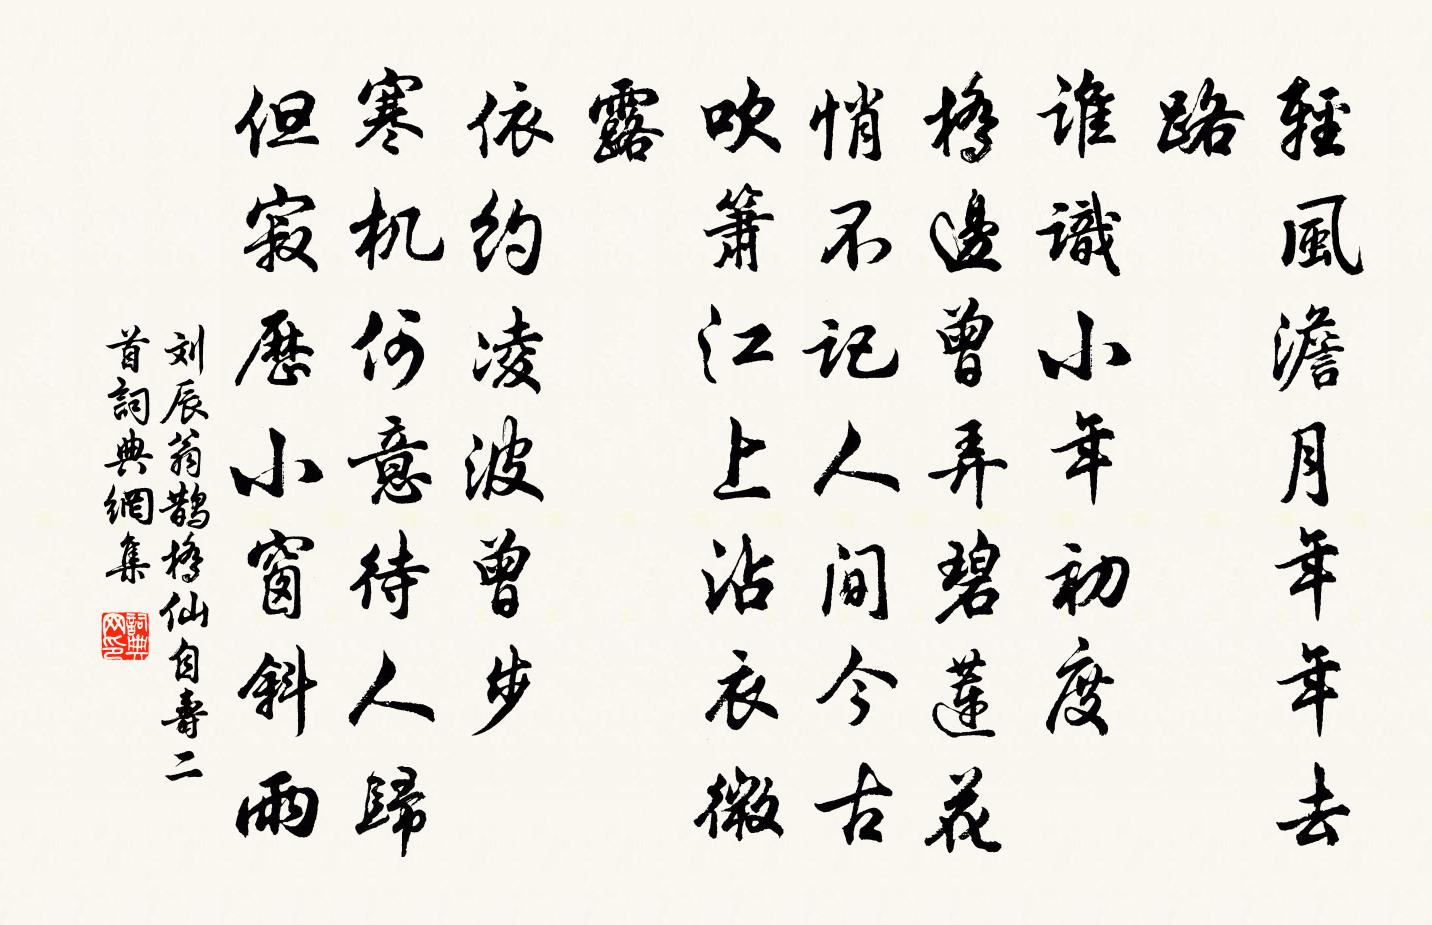 輕風澹月年年去
路
誰識小年初度
橋邊曾弄碧蓮花
悄不記人间今古
吹簫江上沾衣微
露
依約凌波曾步
寒机何意待人歸
但寂歷小窗斜雨
刘辰翁鹊橋仙自壽二
首詞典網集
詞典网印